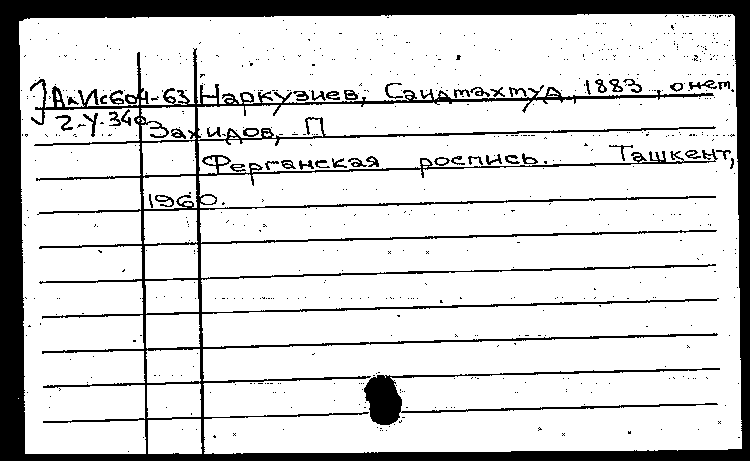 АлИс604-63 Наркузиев, Саидмахмуд, 1883, о нем.
2-У-340 Захидов, П
Ферганская роспись. Ташкент,
1960.